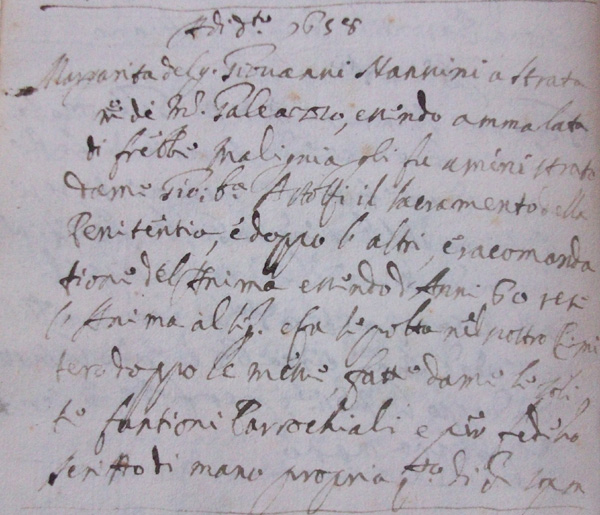 Adi d.to 1658
Margarita del q. Giovanni Nannini a strata
m.e de M. Galeazzo, essendo ammalata
di frebbe malignia gli fu aministrato
dame Gio: b.a Astolfi il sacramento della
Penitentia, è doppo l'altri, è racomanda
tione del Anima essendo d'Anni 60 rese
l'Anima al Sig. e fu sepolta nel nostro Cimi
tero doppo le messe fatte dame le soli
te funtioni Parrochiali e per fede ho
scritto di mano propria q.to di